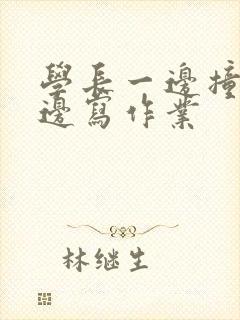 學長一邊撞
邊寫作業
林继生